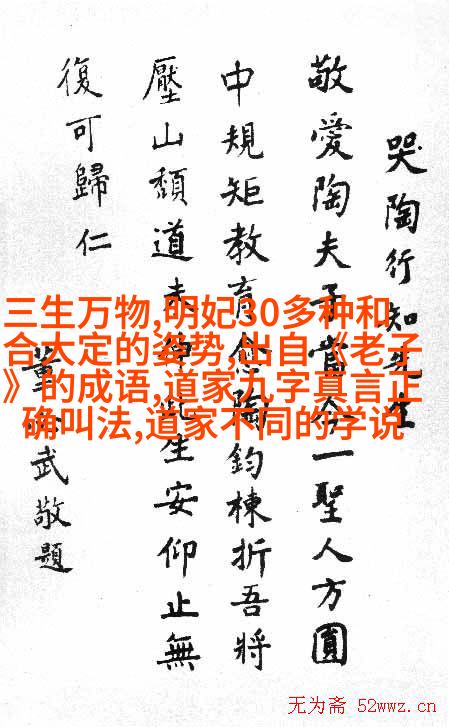 哭陶行知先生
敬愛陶夫子當今一聖人方圓
中規矩教育愈陶鈞棟折吾將
壓山頹道未伸此生安仰止無
復可歸仁
董必武敬題
三生万物,明妃30多种和
合大定的姿势,出自《老子
》的成语,道家九字真言正
确叫法,道家不同的学说
无为斋 52wwz.cn